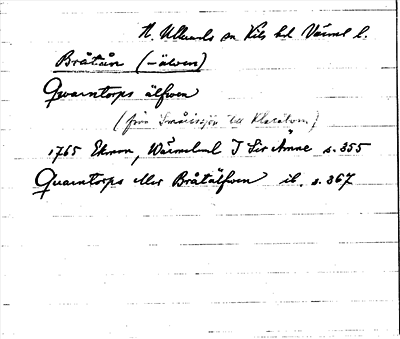 N. Ullerud sn Kils hd Värml l.
Bråtån (-älven)
Qvarntorps älfven
(från Smårissjön till Klarälven)
1765 Ekman, Wärmland I Sir Änne s. 355
Quarntorps eller Bråtälfven ib. s. 367